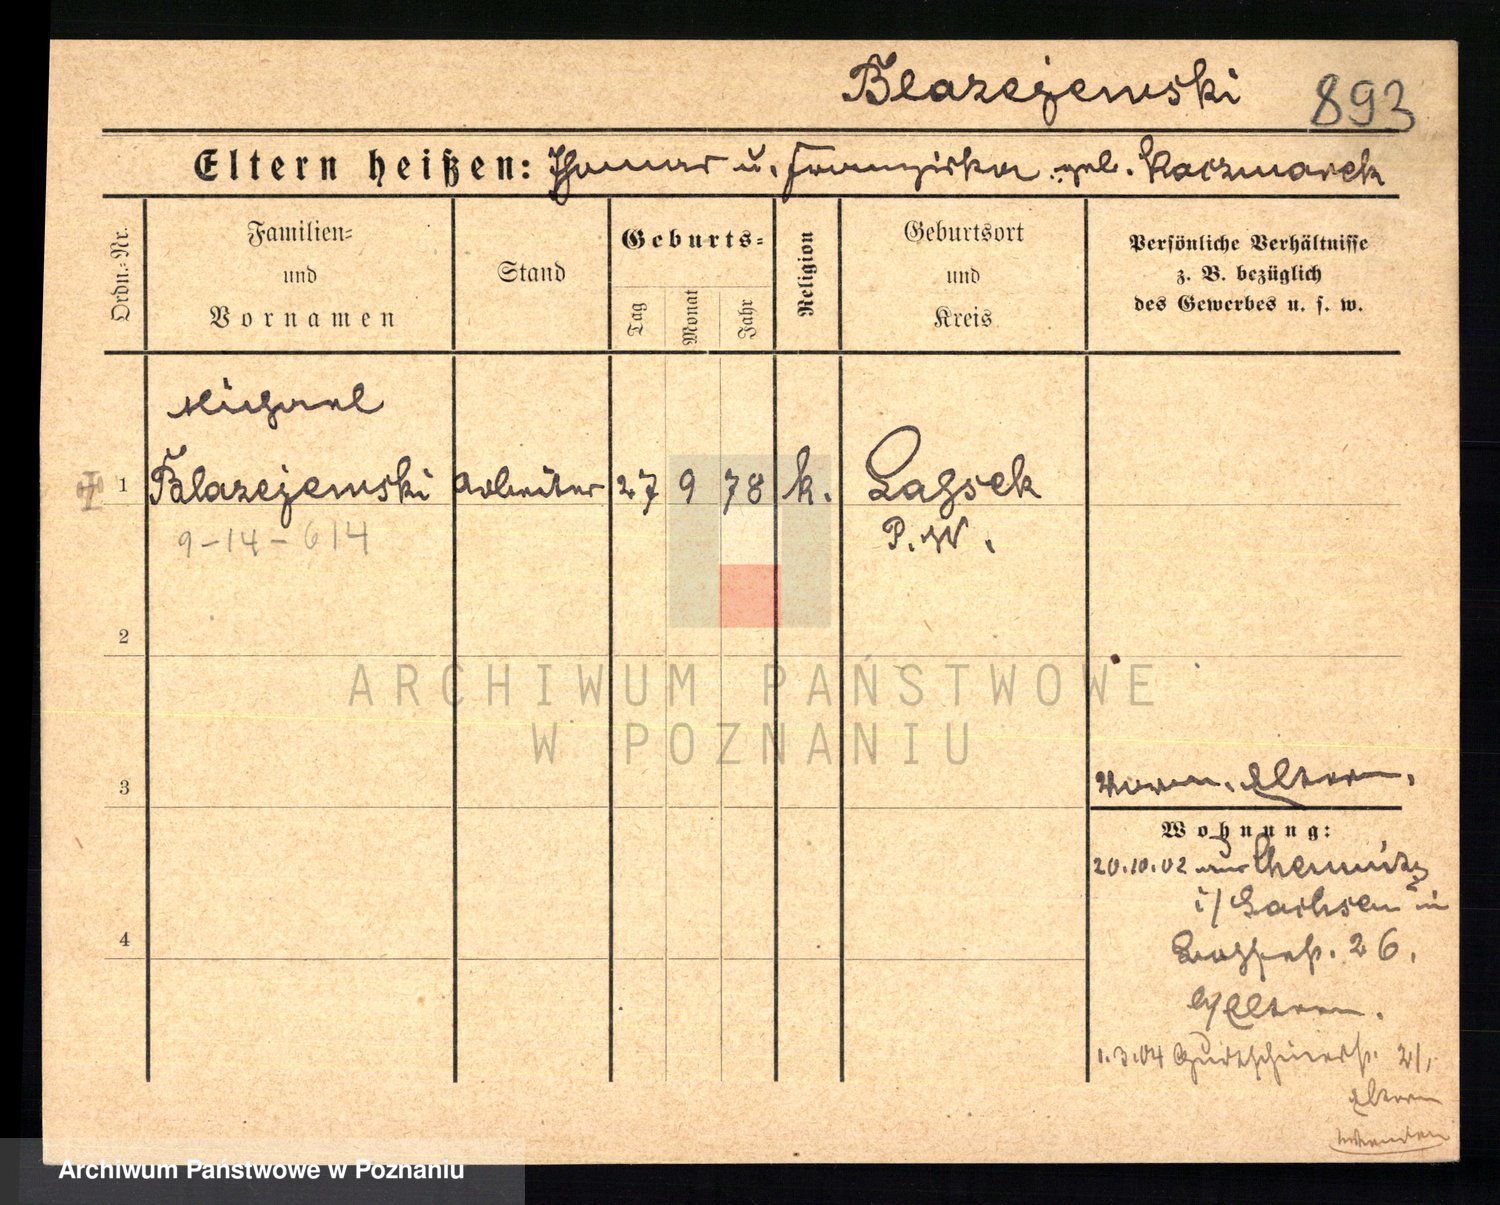 Blazejewski 893
Eltern heißen: Thomas u. Franziska geb. Kaczmarek
Ordn.-Nr.
Familien-
und
Vornamen
Stand
Geburts-
Tag
Monat
Jahr
Religion
Geburtsort
und
Kreis
Persönliche Verhältnisse
z. B. bezüglich
des Gewerbes u. s. w.
Michael
1 Blazejewski Arbeiter 27 9 78 k. Lagsek
9-14-614 P. W.
2
ARCHIWUM PAŃSTWOWE
W POZNANIU
3
Eltern.
Wohnung:
20.10.02 aus Chemnitz
i/ Sachsen in
26.
b/Eltern.
1.3.04 Gurtschinerstr. 21,
Eltern
wenden
4
Archiwum Państwowe w Poznaniu